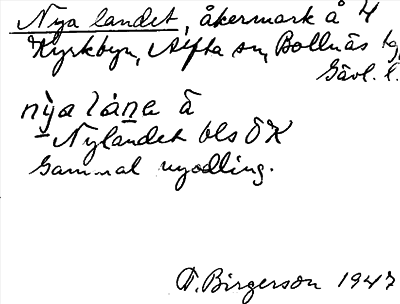 Nya landet, åkermark å 4
Kyrkbyn, Alfta sn, Bollnäs tg,
Gävl. l.
nỳa lánẹ ä
Nylandet bls ÖK
Gammal nyodling.
F. Birgerson 1947